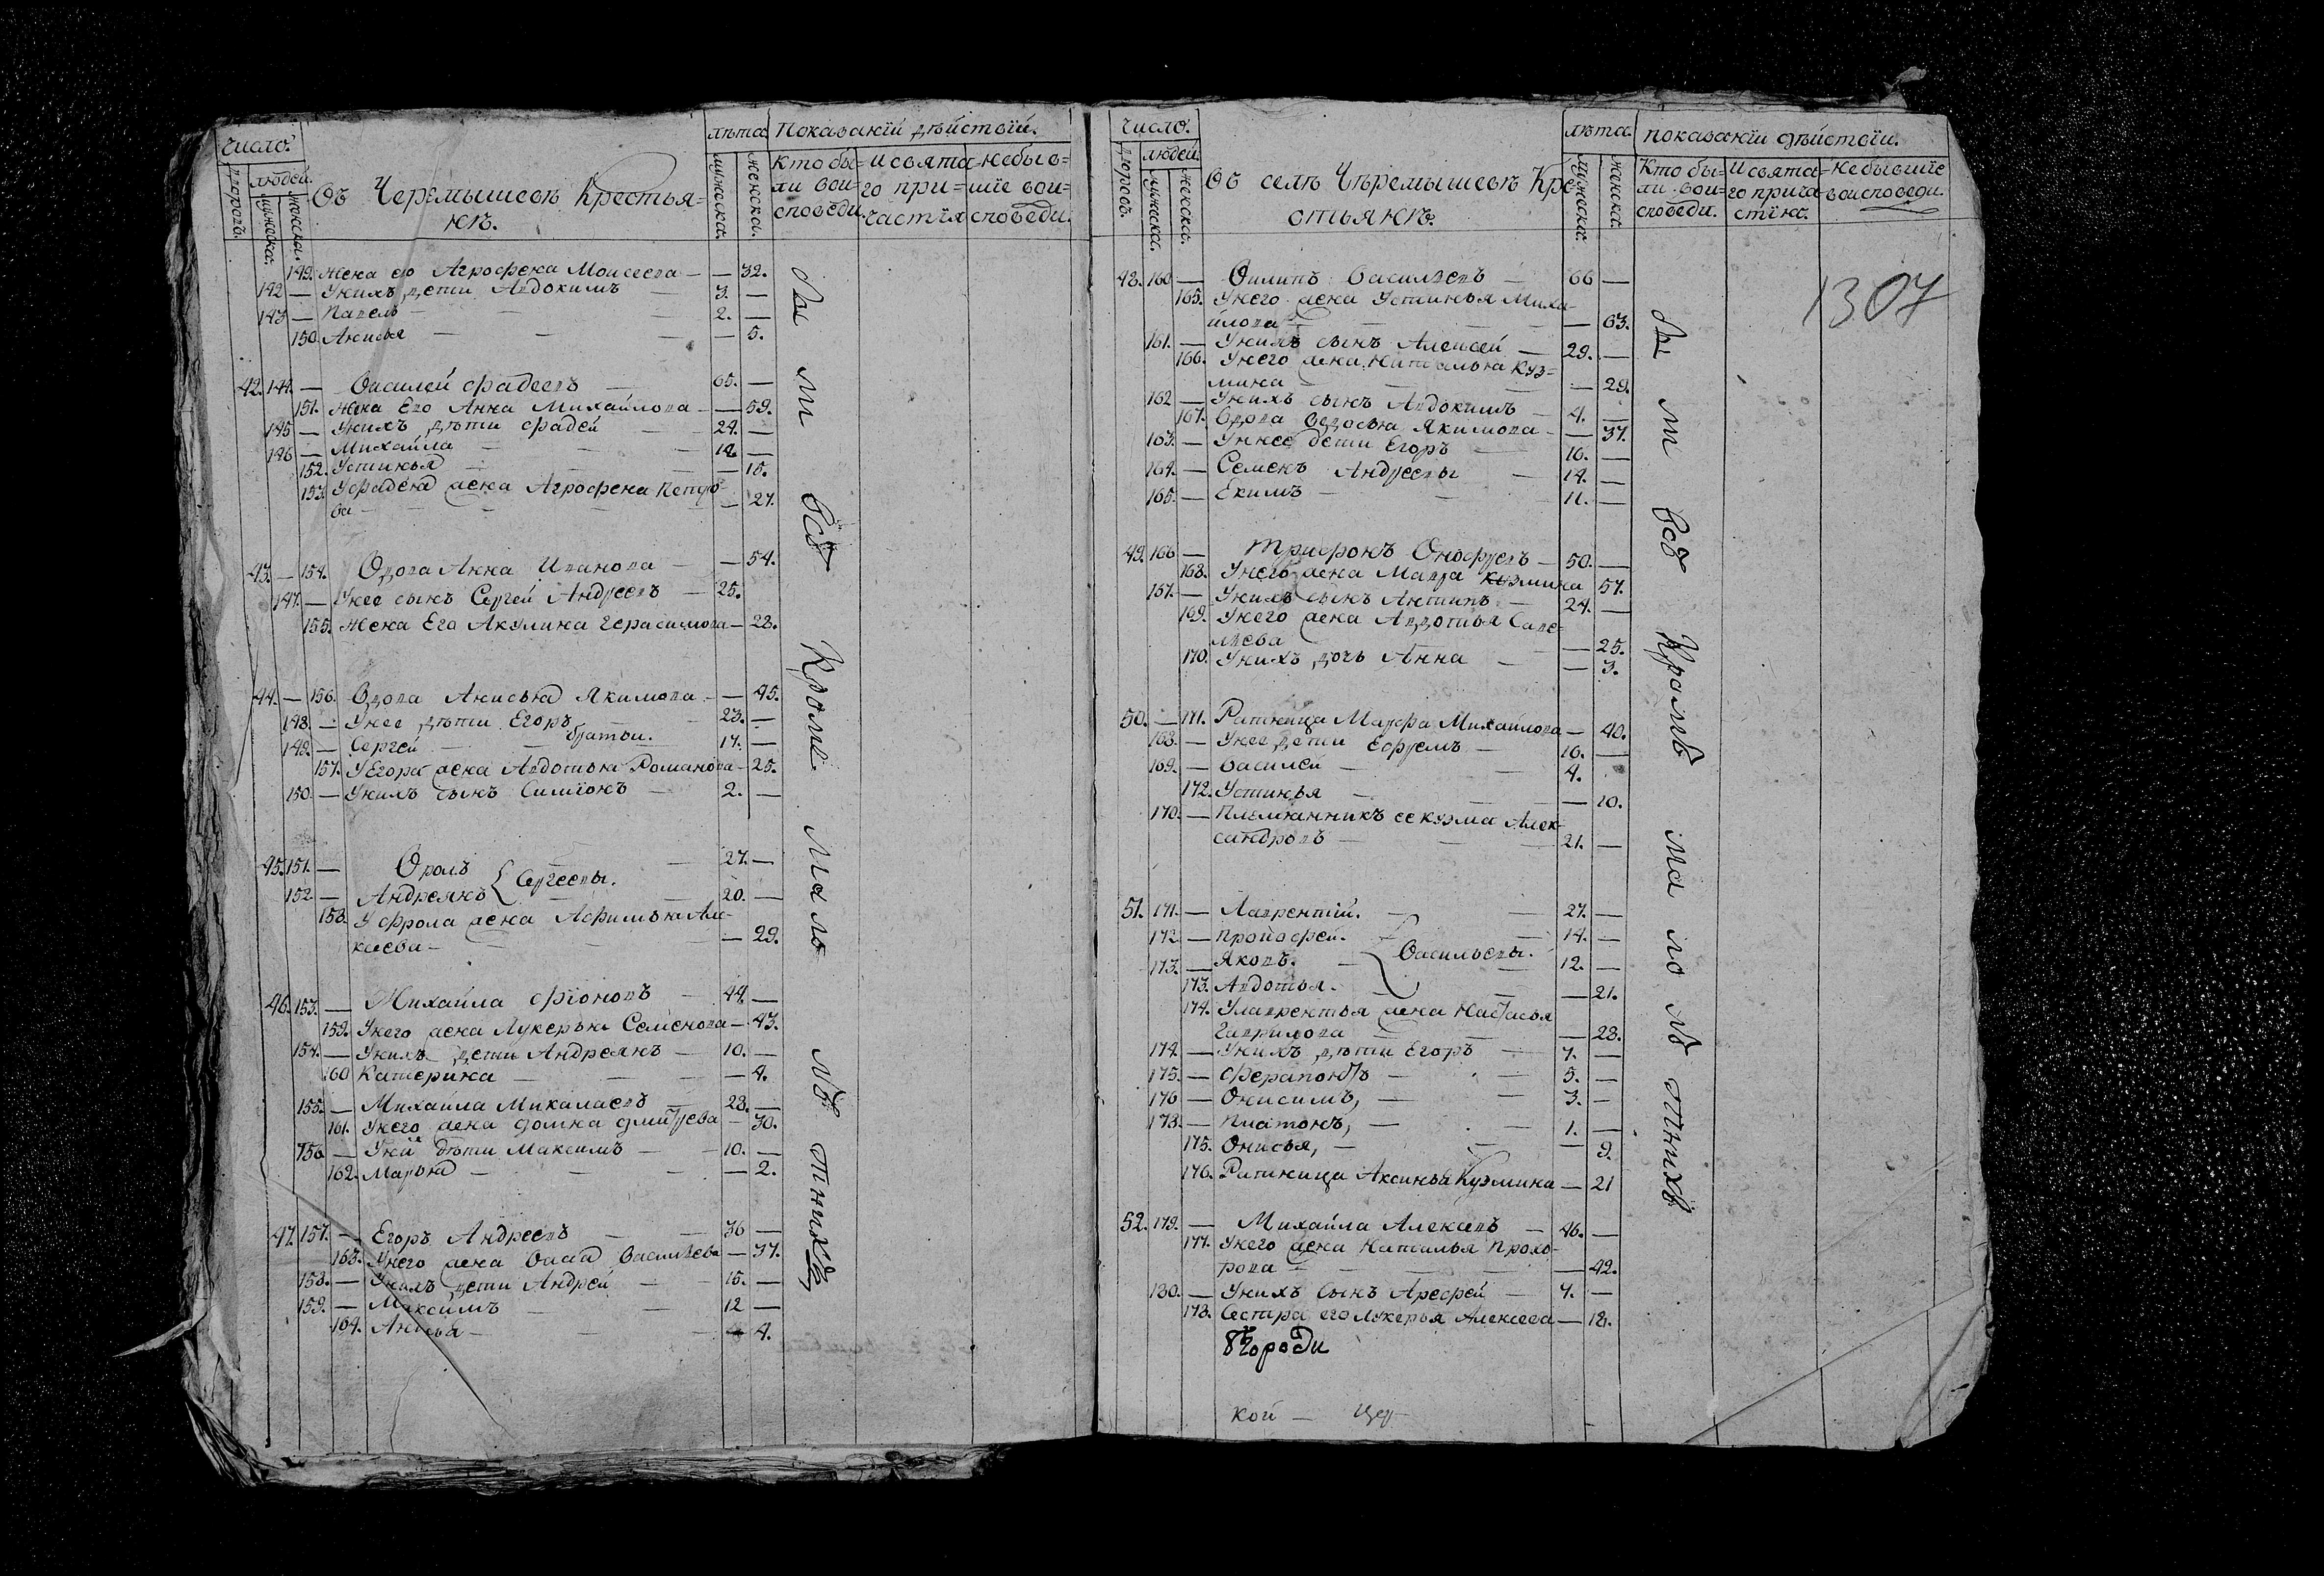 Число.
лѣта.
Показаній дѣйствїй.
Дворовъ.
людей.
мужеска.
женска.
Въ Черемышевѣ Крестья-
нѣ.
мужеска.
женска.
кто бы-
ли вои-
споведи.
и свята-
го при-
частїя
небыв-
шїе вои-
споведи.
149. Жена ево Агрофена Моисеева — — 32.
142 — Унихъ дети Авдокимъ — 3. —
143 — Павелъ — 2. —
150. Анисья — — 5.
42. 144. — Василей Фадеевъ — 65. —
151. Жена Его Анна Михайлова — — 59.
145 — Унихъ дѣти Фадей — 24. —
146 — Михайла — 14. —
152. Устинья — — 15.
153. У Фадея жена Агрофена Петро-
ва — — 27.
43. — 154. Вдова Анна Иванова — — 54.
147. — Унее сынъ Сергей Андреевъ — 25.
155. Жена Его Акулина Герасимова — 28.
44. — 156. Вдова Анисья Якимова — — 45.
148. — Унее дѣти Егоръ — 23. —
149. — Сергей — братьи. 17. —
157. У Егора жена Авдотья Романова — 25.
150. — Унихъ сынъ Симїонъ — 2. —
45. 151. — Фролъ — 27. —
152 — Андреянъ { Сергеевы. 20. —
158. У Фрола жена Афимья Але-
ксеева — — 29.
46. 153. — Михайла Фїоновъ — 44. —
159. Унего жена Лукерья Семенова — 43.
154. — Унихъ дети Андреянъ — 10. —
160 Катерина — — 4.
155. — Михайла Микалаевъ — 28. —
161. Унего жена Домна Дмитрева — 30.
156. — Уний дѣти Максимъ — 10. —
162. Марья — — 2.
47. 157. — Егоръ Андреевъ — 36 —
163. Унего жена Васса Василѣева — 37.
158. — Унихъ дети Андрей — 15. —
159. — Максимъ — 12 —
164. Анисья — 4.
бы ли всѣ Кроме мало лѣтнихъ
Число.
лѣта.
показанїи дѣйствїи.
Дворовъ.
людей.
мужеска.
женска.
Въ селѣ Черемышевѣ Кре-
стьянѣ.
мужеска.
женска.
Кто бы-
ли вои-
споведи.
И свята-
го прича-
стїя.
небывшїе
воисповеди.
1307
48. 160 — Филипъ Василѣевъ — 66 —
165. Унего жена Устинья Миха-
йлова — — 63.
161. — Унихъ сынъ Алексей — 29. —
166. Унего жена Наталья Куз-
мина — — 29.
162 — Унихъ сынъ Авдокимъ — 4. —
167. Вдова Ѳедосья Якимова — — 37.
163. — Унеее дети Егоръ — 16. —
164. — Семенъ Андреевы — 14. —
165. — Екимъ — 11. —
49. 166 — Трифонъ Онофревъ — 50. —
168. Унего жена Мавра Кузмина 57.
167. — Унихъ сынъ Антипъ — 24. —
169. Унего жена Авдотья Саве-
лѣева — — 25.
170. Унихъ дочь Анна — — 3.
50. — 171. Ратница Марфа Михайлова — 40.
168. — Унее дети Ефремъ — 16. —
169. — Василей — 4.
172. Устинья — — 10.
170. — Племянникъ ее Кузма Алек-
сандровъ — 21. —
51. 171. — Лаврентїй. — 27. —
172. — Прокофей. — 14. —
173. — Яковъ. — { Васильевы. 12. —
173. Авдотья. — — 21.
174. Улаврентья жена Настасья
Гаврилова — — 28.
174. — Унихъ дѣти Егоръ — 7. —
175. — Ферапонтъ — 5. —
176 — Онисимъ, — 3. —
178. — Платонъ, — 1. —
175. Онисья, — — 9.
176. Ратница Аксинья Кузмина — 21
52. 179. — Михайла Алексевъ — 46. —
177. Унего жена Наталья Прохо-
рова — — 42.
180. — Унихъ сынъ Арефей — 7. —
178. Сестра его Лукерья Алексеева — 18.
бы ли всѣ Кромѣ ма ло лѣ тнихъ
кой —